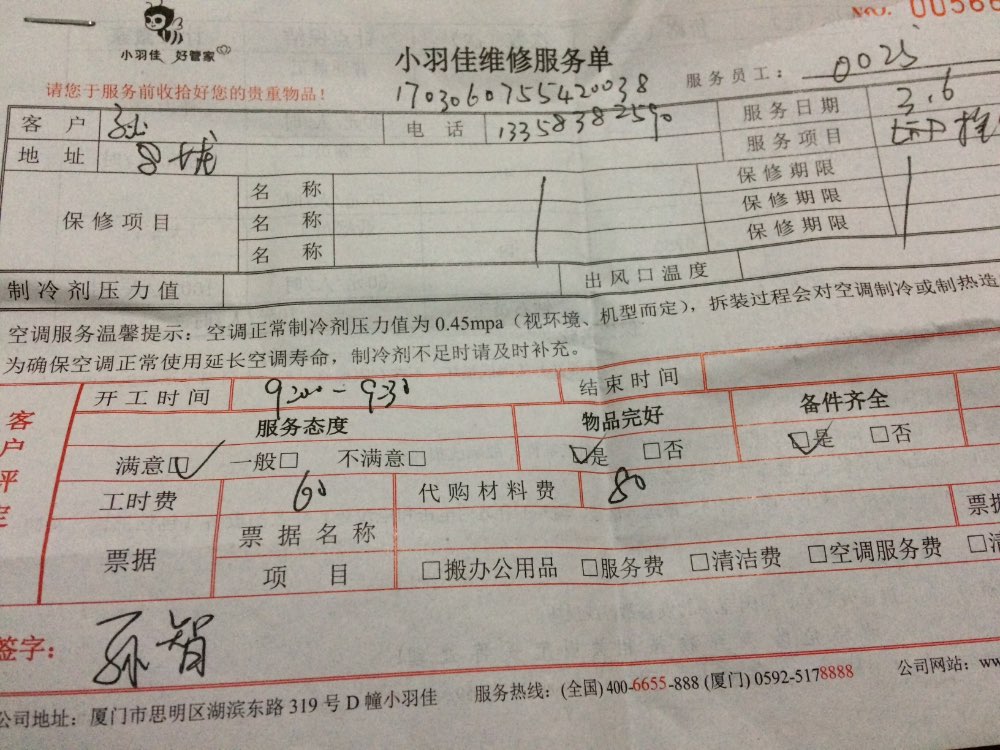 No. 00566
小羽佳 好管家
小羽佳维修服务单
请您于服务前收拾好您的贵重物品！
1703060755420038
服务员工： 0025
客 户 孙 电 话 13358382590 服务日期 3.6
地 址 服务项目
保修项目 名 称 保修期限
名 称 保修期限
名 称 保修期限
制冷剂压力值 出风口温度
空调服务温馨提示：空调正常制冷剂压力值为 0.45mpa（视环境、机型而定），拆装过程会对空调制冷或制热造
为确保空调正常使用延长空调寿命，制冷剂不足时请及时补充。
客户评定
开工时间 9:00-9:30 结束时间
服务态度 物品完好 备件齐全
满意☑ 一般□ 不满意□ ☑是 □否 ☑是 □否
工时费 60 代购材料费 80
票据 票据名称 票据
项 目 □搬办公用品 □服务费 □清洁费 □空调服务费 □清
签字： 孙智
公司地址：厦门市思明区湖滨东路 319 号 D 幢小羽佳 服务热线：(全国) 400-6655-888 (厦门) 0592-5178888 公司网站：ww